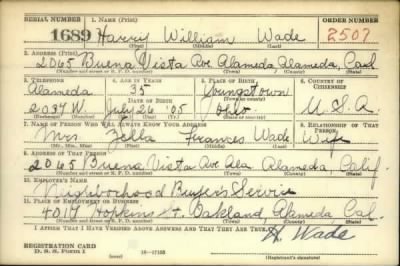 SERIAL NUMBER 1. NAME (Print) ORDER NUMBER
1689 Harry William Wade 2507
(First) (Middle) (Last)
2. ADDRESS (Print)
2065 Buena Vista Ave Alameda Alameda, Cal
(Number and street or R. F. D. number) (Town) (County) (State)
3. TELEPHONE 4. AGE IN YEARS 5. PLACE OF BIRTH 6. COUNTRY OF CITIZENSHIP
Alameda 35 Youngstown
DATE OF BIRTH (Town or county)
2037 W. July 26 '05 Ohio U.S.A.
(Exchange) (Number) (Mo.) (Day) (Yr.) (State or country)
7. NAME OF PERSON WHO WILL ALWAYS KNOW YOUR ADDRESS 8. RELATIONSHIP OF THAT PERSON
Mrs. Zella Frances Wade Wife
(Mr., Mrs., Miss) (First) (Middle) (Last)
9. ADDRESS OF THAT PERSON
2065 Buena Vista Ave Ala. Alameda, Calif.
(Number and street or R. F. D. number) (Town) (County) (State)
10. EMPLOYER'S NAME
Neighborhood Buyers Service
11. PLACE OF EMPLOYMENT OR BUSINESS
4017 Hopkins St. Oakland Alameda Cal.
(Number and street or R. F. D. number) (Town) (County) (State)
I AFFIRM THAT I HAVE VERIFIED ABOVE ANSWERS AND THAT THEY ARE TRUE.
H. Wade
REGISTRATION CARD
D. S. S. FORM 1 (over) (Registrant's signature)